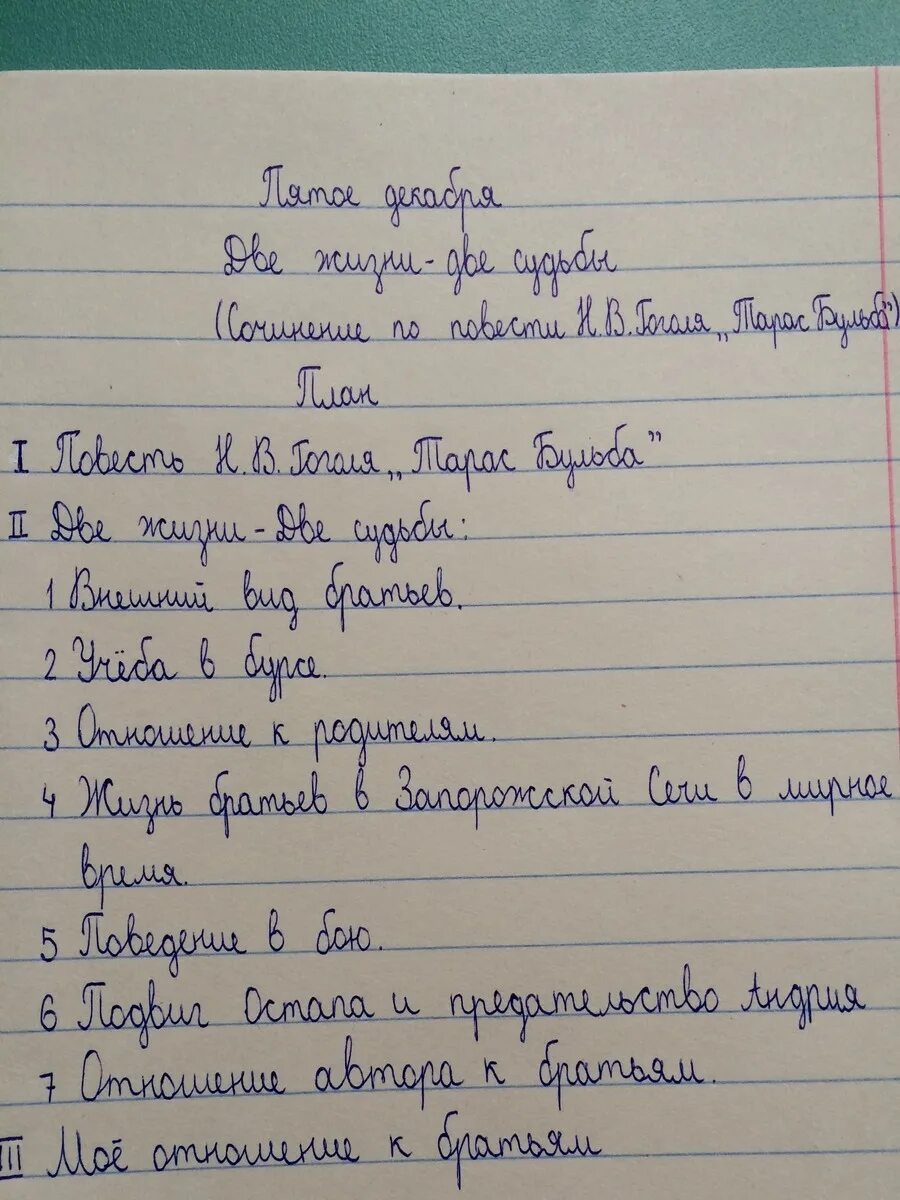 Пятое декабря
Две жизни - две судьбы
(Сочинение по повести Н.В.Гоголя „Тарас Бульба")
План
I Повесть Н.В.Гоголя „Тарас Бульба"
II Две жизни - Две судьбы:
1 Внешний вид братьев.
2 Учёба в бурсе.
3 Отношение к родителям.
4 Жизнь братьев в Запорожской Сечи в мирное
время.
5 Поведение в бою.
6 Подвиг Остапа и предательство Андрия
7 Отношение автора к братьям.
III Моё отношение к братьям